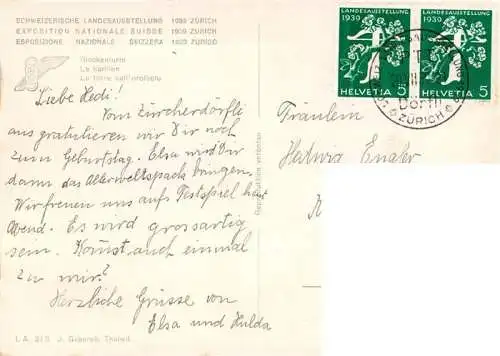 SCHWEIZERISCHE LANDESAUSSTELLUNG 1939 ZÜRICH
EXPOSITION NATIONALE SUISSE 1939 ZURICH
ESPOSIZIONE NAZIONALE SVIZZERA 1939 ZURIGO
Glockenturm
Le carillon
LANDESAUSSTELLUNG
1939
HELVETIA 5
LANDESAUSSTELLUNG
1939
HELVETIA 5
Dörfli
ZÜRICH
Liebe Hedi!
Vom Zürcherdörfli
aus gratulieren wir Dir noch
zum Geburtstag. Elsa wird Dir
dann das Allerweltspack bringen.
Wir freuen uns aufs Festspiel heut
Abend. Es wird grossartig
sein. Komst auch einmal
zu mir?
Herzliche Grüsse von
Elsa und Hulda
Fräulein
Hedwig
Reproduktion verboten
L.A. J. Gaberell, Thalwil